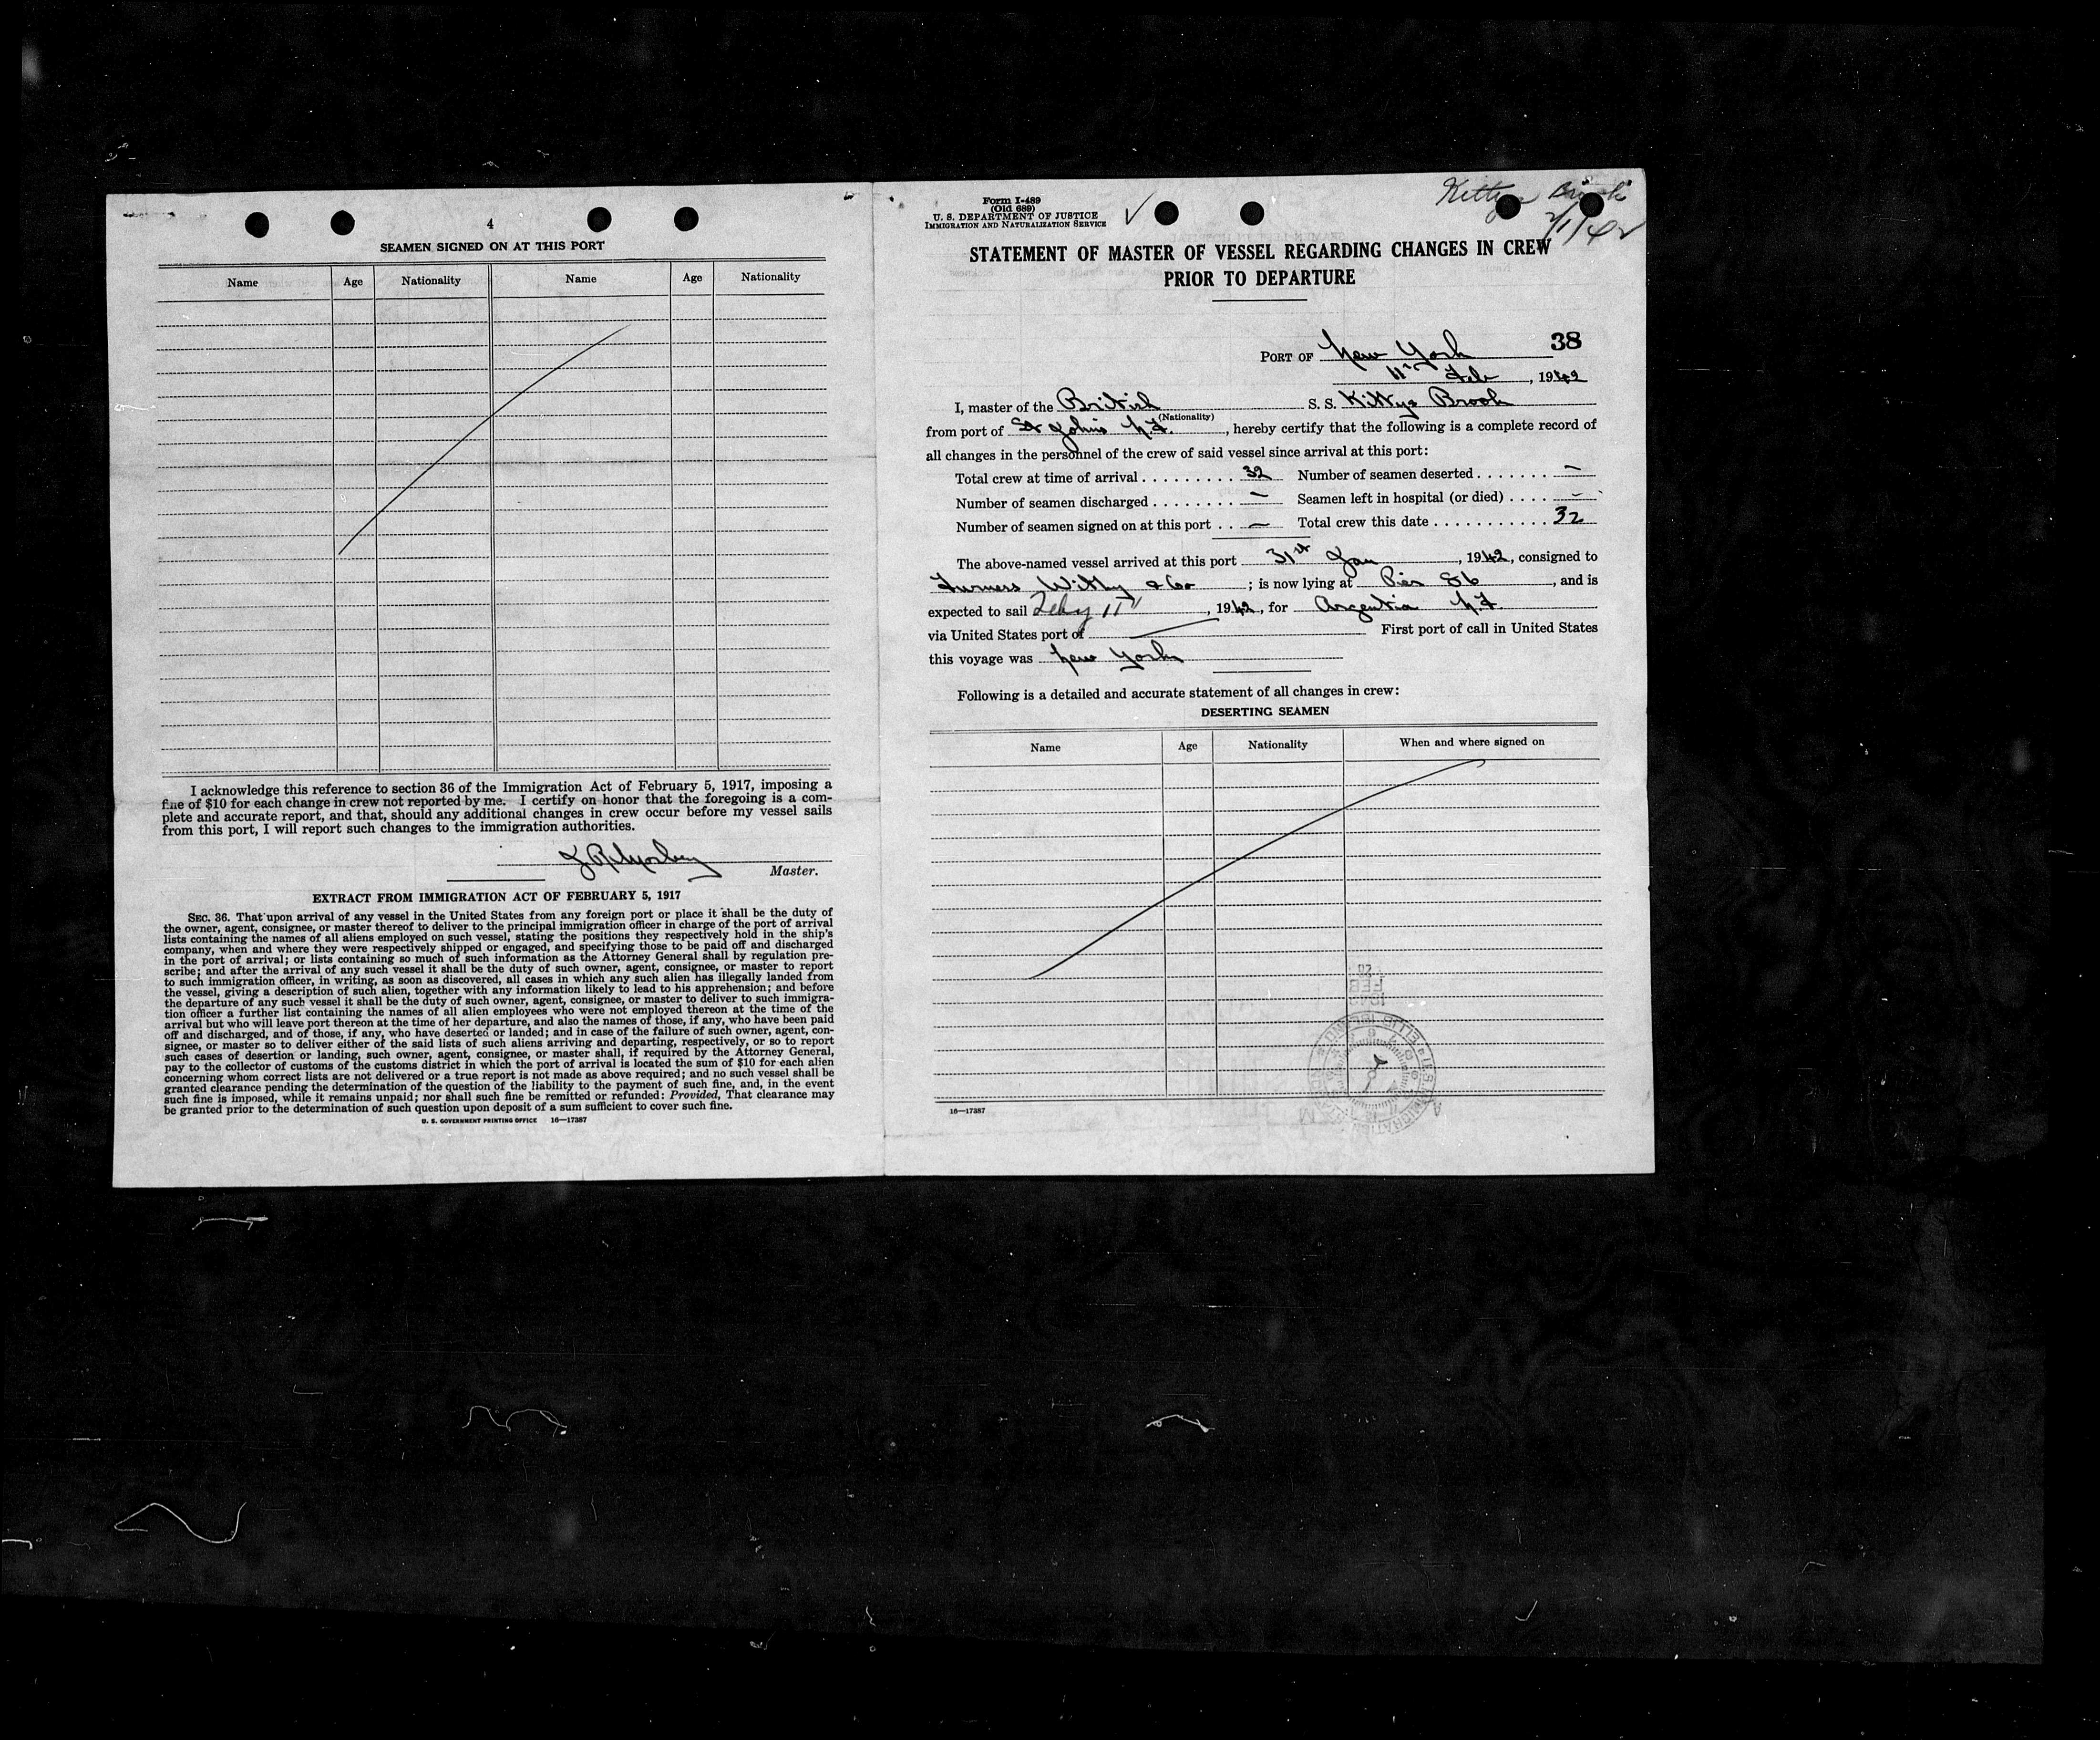 4
SEAMEN SIGNED ON AT THIS PORT
Name Age Nationality Name Age Nationality
I acknowledge this reference to section 36 of the Immigration Act of February 5, 1917, imposing a
fine of $10 for each change in crew not reported by me. I certify on honor that the foregoing is a com-
plete and accurate report, and that, should any additional changes in crew occur before my vessel sails
from this port, I will report such changes to the immigration authorities.
Master.
EXTRACT FROM IMMIGRATION ACT OF FEBRUARY 5, 1917
SEC. 36. That upon arrival of any vessel in the United States from any foreign port or place it shall be the duty of
the owner, agent, consignee, or master thereof to deliver to the principal immigration officer in charge of the port of arrival
lists containing the names of all aliens employed on such vessel, stating the positions they respectively hold in the ship's
company, when and where they were respectively shipped or engaged, and specifying those to be paid off and discharged
in the port of arrival; or lists containing so much of such information as the Attorney General shall by regulation pre-
scribe; and after the arrival of any such vessel it shall be the duty of such owner, agent, consignee, or master to report
to such immigration officer, in writing, as soon as discovered, all cases in which any such alien has illegally landed from
the vessel, giving a description of such alien, together with any information likely to lead to his apprehension; and before
the departure of any such vessel it shall be the duty of such owner, agent, consignee, or master to deliver to such immigra-
tion officer a further list containing the names of all alien employees who were not employed thereon at the time of the
arrival but who will leave port thereon at the time of her departure, and also the names of those, if any, who have been paid
off and discharged, and of those, if any, who have deserted or landed; and in case of the failure of such owner, agent, con-
signee, or master so to deliver either of the said lists of such aliens arriving and departing, respectively, or so to report
such cases of desertion or landing, such owner, agent, consignee, or master shall, if required by the Attorney General,
pay to the collector of customs of the customs district in which the port of arrival is located the sum of $10 for each alien
concerning whom correct lists are not delivered or a true report is not made as above required; and no such vessel shall be
granted clearance pending the determination of the question of the liability to the payment of such fine, and, in the event
such fine is imposed, while it remains unpaid; nor shall such fine be remitted or refunded: Provided, That clearance may
be granted prior to the determination of such question upon deposit of a sum sufficient to cover such fine.
U. S. GOVERNMENT PRINTING OFFICE 16—17387
Form I-489
(Old 689)
U. S. DEPARTMENT OF JUSTICE
IMMIGRATION AND NATURALIZATION SERVICE
Kittys Brook
2/1/42
STATEMENT OF MASTER OF VESSEL REGARDING CHANGES IN CREW
PRIOR TO DEPARTURE
38
PORT OF New York
11th Feb, 1942
I, master of the British S. S. Kittys Brook
(Nationality)
from port of St Johns N.F., hereby certify that the following is a complete record of
all changes in the personnel of the crew of said vessel since arrival at this port:
Total crew at time of arrival . . . . . . . . . . 32 Number of seamen deserted . . . . . . . —
Number of seamen discharged . . . . . . . . — Seamen left in hospital (or died) . . . . —
Number of seamen signed on at this port . . — Total crew this date . . . . . . . . . . . 32
The above-named vessel arrived at this port 31st Jan, 1942, consigned to
Furness Withy & Co; is now lying at Pier 86, and is
expected to sail Feby 11", 1942, for Argentia N.F.
via United States port of First port of call in United States
this voyage was New York
Following is a detailed and accurate statement of all changes in crew:
DESERTING SEAMEN
Name Age Nationality When and where signed on
16—17387